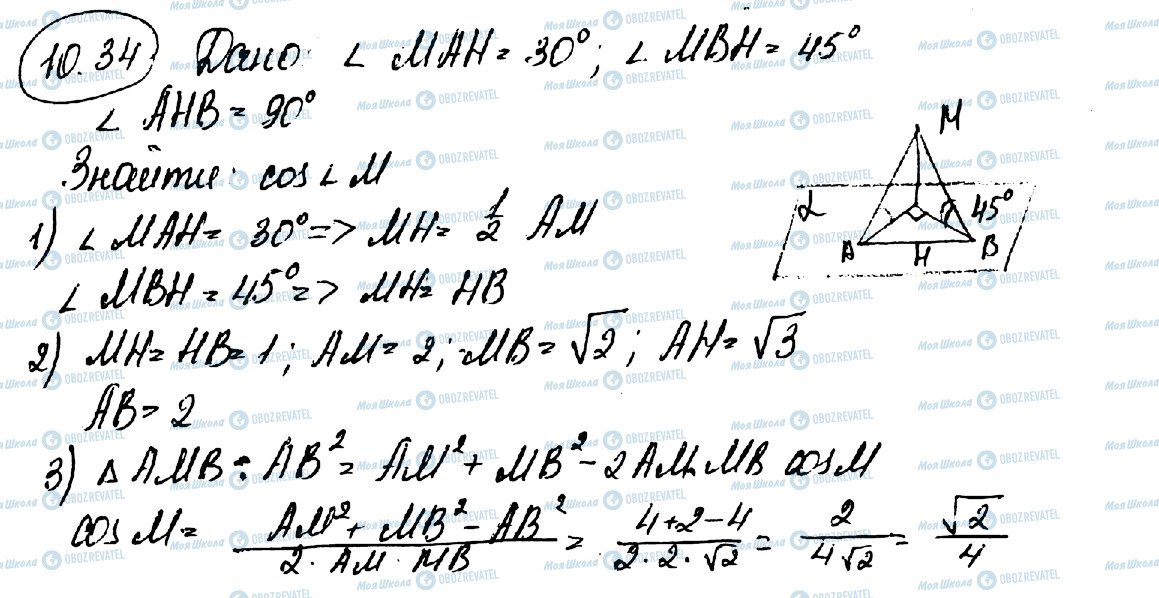 10.34 Дано: ∠ MAH = 30°; ∠ MBH = 45°
∠ AHB = 90°
Знайти: cos ∠ M
1) ∠ MAH = 30° => MH = 1/2 AM
∠ MBH = 45° => MH = HB
2) MH = HB = 1; AM = 2; MB = √2; AH = √3
AB = 2
3) Δ AMB: AB² = AM² + MB² - 2AM·MB cos M
cos M = (AM² + MB² - AB²)/(2·AM·MB) = (4+2-4)/(2·2·√2) = 2/(4√2) = √2/4
M
α
45°
A
H
B
Моя Школа OBOZREVATEL